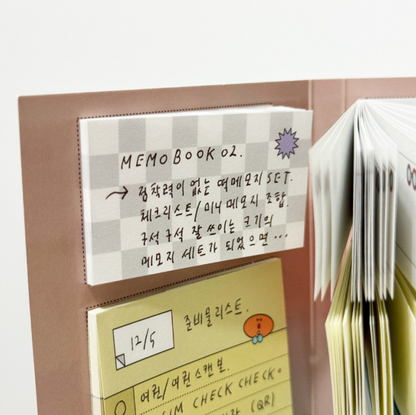 MEMO BOOK 02.
→ 점착력이 없는 떡메모지 SET.
체크리스트/미니 메모지 조합.
구석 구석 잘 쓰이는 크기의
메모지 세트가 되었으면 ...
준비물리스트.
12/5
여권/여권 스캔본.
SIM CHECK CHECK.
(QR)